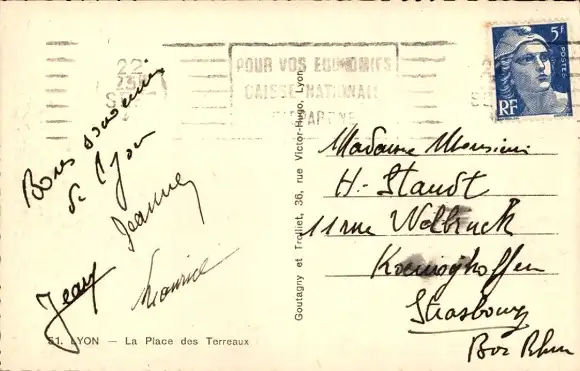 22
POUR VOS ECONOMIES
CAISSE NATIONALE
D'EPARGNE
5F
POSTES
RF
Bons souvenirs
de Lyon
Jeanne
Jean
Maurice
Goutagny et Trolliet, 36, rue Victor-Hugo, Lyon
Madame Monsieur
H. Staudt
11 rue Welbruck
Koenigshoffen
Strasbourg
Bas Rhin
51. LYON - La Place des Terreaux